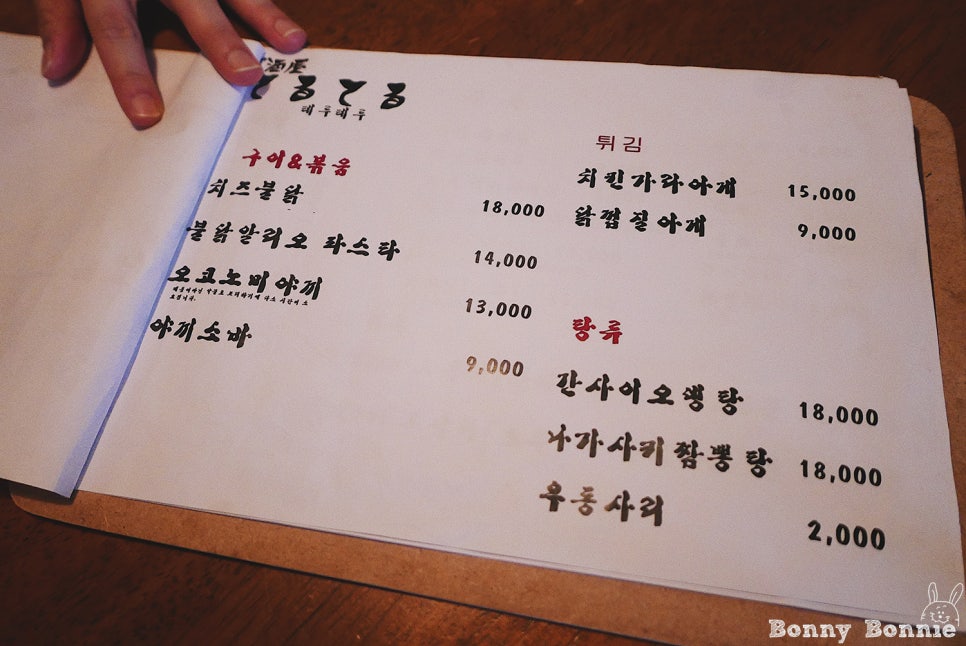 酒屋
てるてる
테루테루
구이&볶음
치즈불닭 18,000
불닭알리오 파스타 14,000
오코노미야끼 13,000
야끼소바 9,000
튀김
치킨가라아게 15,000
닭껍질아게 9,000
탕류
칸사이오뎅탕 18,000
나가사키짬뽕탕 18,000
우동사리 2,000
Bonny Bonnie